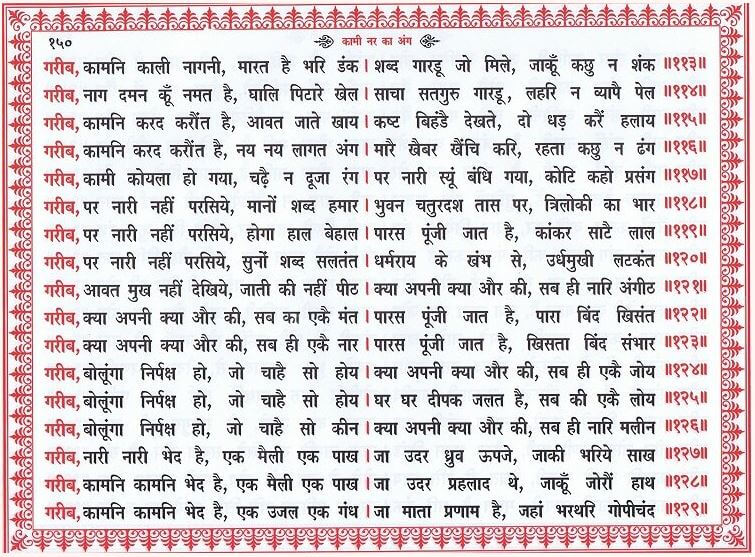 १५० कामी नर का अंग
गरीब, कामनि काली नागनी, मारत है भरि डंक। शब्द गारडू जो मिले, जाकूँ कछु न शंक ॥११३॥
गरीब, नाग दमन कूँ नमत है, घालि पिटारे खेल। साचा सतगुरु गारडू, लहरि न व्यापै पेल ॥११४॥
गरीब, कामनि करद करौंत है, आवत जाते खाय। कष्ट बिहंडै देखते, दो धड़ करैं हलाय ॥११५॥
गरीब, कामनि करद करौंत है, नय नय लागत अंग। मारै खैबर खैंचि करि, रहता कछु न ढंग ॥११६॥
गरीब, कामी कोयला हो गया, चढ़ै न दूजा रंग। पर नारी स्यूं बंधि गया, कोटि कहो प्रसंग ॥११७॥
गरीब, पर नारी नहीं परसिये, मानों शब्द हमार। भुवन चतुरदश तास पर, त्रिलोकी का भार ॥११८॥
गरीब, पर नारी नहीं परसिये, होगा हाल बेहाल। पारस पूंजी जात है, कांकर साटै लाल ॥११९॥
गरीब, पर नारी नहीं परसिये, सुनों शब्द सलतंत। धर्मराय के खंभ से, उर्धमुखी लटकंत ॥१२०॥
गरीब, आवत मुख नहीं देखिये, जाती की नहीं पीठ। क्या अपनी क्या और की, सब ही नारि अंगीठ ॥१२१॥
गरीब, क्या अपनी क्या और की, सब का एकै मंत। पारस पूंजी जात है, पारा बिंद खिसंत ॥१२२॥
गरीब, क्या अपनी क्या और की, सब ही एकै नार। पारस पूंजी जात है, खिसता बिंद संभार ॥१२३॥
गरीब, बोलूंगा निर्पक्ष हो, जो चाहै सो होय। क्या अपनी क्या और की, सब ही एकै जोय ॥१२४॥
गरीब, बोलूंगा निर्पक्ष हो, जो चाहै सो होय। घर घर दीपक जलत है, सब की एकै लोय ॥१२५॥
गरीब, बोलूंगा निर्पक्ष हो, जो चाहै सो कीन। क्या अपनी क्या और की, सब ही नारि मलीन ॥१२६॥
गरीब, नारी नारी भेद है, एक मैली एक पाख। जा उदर ध्रुव ऊपजे, जाकी भरिये साख ॥१२७॥
गरीब, कामनि कामनि भेद है, एक मैली एक पाख। जा उदर प्रहलाद थे, जाकूँ जोरौं हाथ ॥१२८॥
गरीब, कामनि कामनि भेद है, एक उजल एक गंध। जा माता प्रणाम है, जहां भरथरि गोपीचंद ॥१२९॥